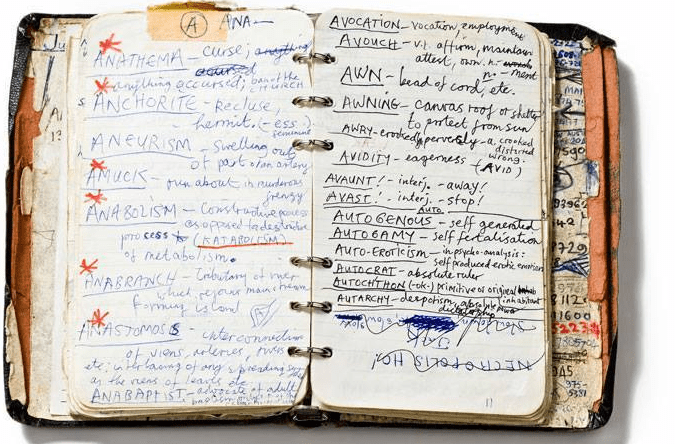 A ANA-
ANATHEMA - curse, anything
accursed
anything accursed; ban of the CHURCH
ANCHORITE - Recluse,
hermit. (-ess.) feminine
ANEURISM - Swelling out
of part of an artery
AMUCK - run about in murderous
frenzy
ANABOLISM - Constructive process
as opposed to destructive
process (KATABOLISM)
of metabolism.
ANABRANCH - tributary of river
which rejoins main stream
forming island
ANASTOMOSIS - interconnection
of viens, arteries, rivers
etc; interlacing of any spreading
as the viens of leaves etc.
ANABAPTIST - advocate of adult
AVOCATION - vocation, employment
AVOUCH - v.t. affirm, maintain
attest, own. n. -ment
AWN - bead of cord, etc.
AWNING - canvas roof or shelter
to protect from sun
AWRY - crookedly, perversely - a. crooked
distorted
wrong.
AVIDITY - eagerness (AVID)
AVAUNT! - interj. - away!
AVAST! - interj. - stop!
AUTO.
AUTOGENOUS - self generated
AUTOGAMY - self fertalisation
AUTO-EROTICISM - in psycho-analysis:
self produced erotic emotions
AUTOCRAT - absolute ruler
AUTOCHTHON (-ok-) primitive or original
inhabitant
AUTARCHY - despotism, absolute power
dictatorship
NECROPOLIS HOL
11